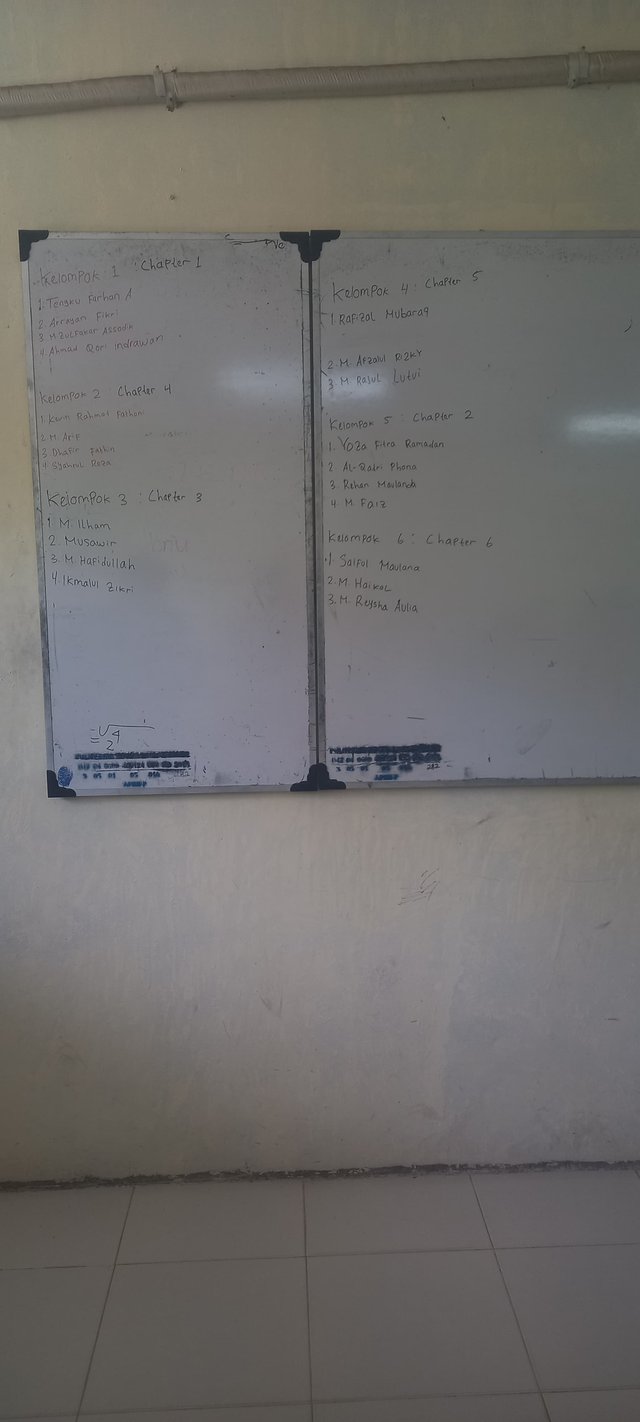 Kelompok 1 : Chapter 1
1. Tengku Farhan A
2. Arrayan Fikri
3 M Zulfakar Assodik
4. Ahmad Qori indrawan
Kelompok 2 : Chapter 4
1 Kevin Rahmat Fathoni
2 M. Arif
3 Dhafir Fathin
4. Syahrul Reza
Kelompok 3 : Chapter 3
1 M. Ilham
2. Musawir
3. M Hafidullah
4. Ikmalul Zikri
√4
= 2
Kelompok 4 : Chapter 5
1 Rafizal Mubaraq
2. M. Afzalul Rizky
3 M. Rasul Lutvi
Kelompok 5 : Chapter 2
1. Yoza Fitra Ramadan
2 Al-Qadri Phona
3. Rehan Maulanda
4. M Faiz
Kelompok 6 : Chapter 6
1. Saiful Maulana
2. M. Haikal
3. M. Reysha Aulia
282